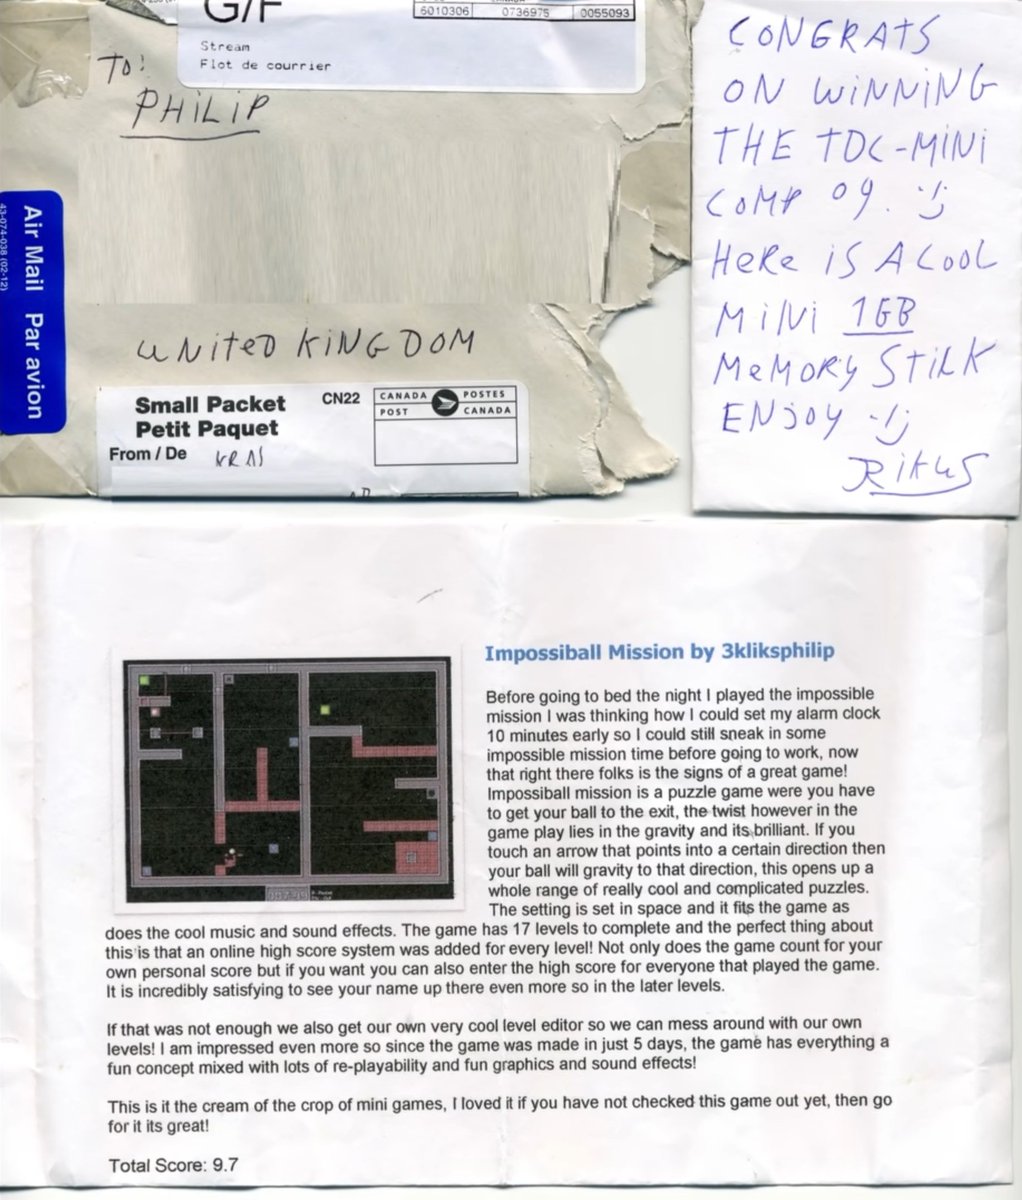 G/F
6010306 0736975 0055093
Stream
Flot de courrier
TO:
PHILIP
Air Mail Par avion
43-074-038 (02-12)
UNITED KINGDOM
Small Packet
Petit Paquet
CN22
CANADA POSTES
POST CANADA
From / De
CONGRATS
ON WINNING
THE TDC-MINI
COMP 09. :)
HERE IS A COOL
MINI 1GB
MEMORY STICK
ENJOY :)
RIKUS
Impossiball Mission by 3kliksphilip
Before going to bed the night I played the impossible
mission I was thinking how I could set my alarm clock
10 minutes early so I could still sneak in some
impossible mission time before going to work, now
that right there folks is the signs of a great game!
Impossiball mission is a puzzle game were you have
to get your ball to the exit, the twist however in the
game play lies in the gravity and its brilliant. If you
touch an arrow that points into a certain direction then
your ball will gravity to that direction, this opens up a
whole range of really cool and complicated puzzles.
The setting is set in space and it fits the game as
does the cool music and sound effects. The game has 17 levels to complete and the perfect thing about
this is that an online high score system was added for every level! Not only does the game count for your
own personal score but if you want you can also enter the high score for everyone that played the game.
It is incredibly satisfying to see your name up there even more so in the later levels.
If that was not enough we also get our own very cool level editor so we can mess around with our own
levels! I am impressed even more so since the game was made in just 5 days, the game has everything a
fun concept mixed with lots of re-playability and fun graphics and sound effects!
This is it the cream of the crop of mini games, I loved it if you have not checked this game out yet, then go
for it its great!
Total Score: 9.7